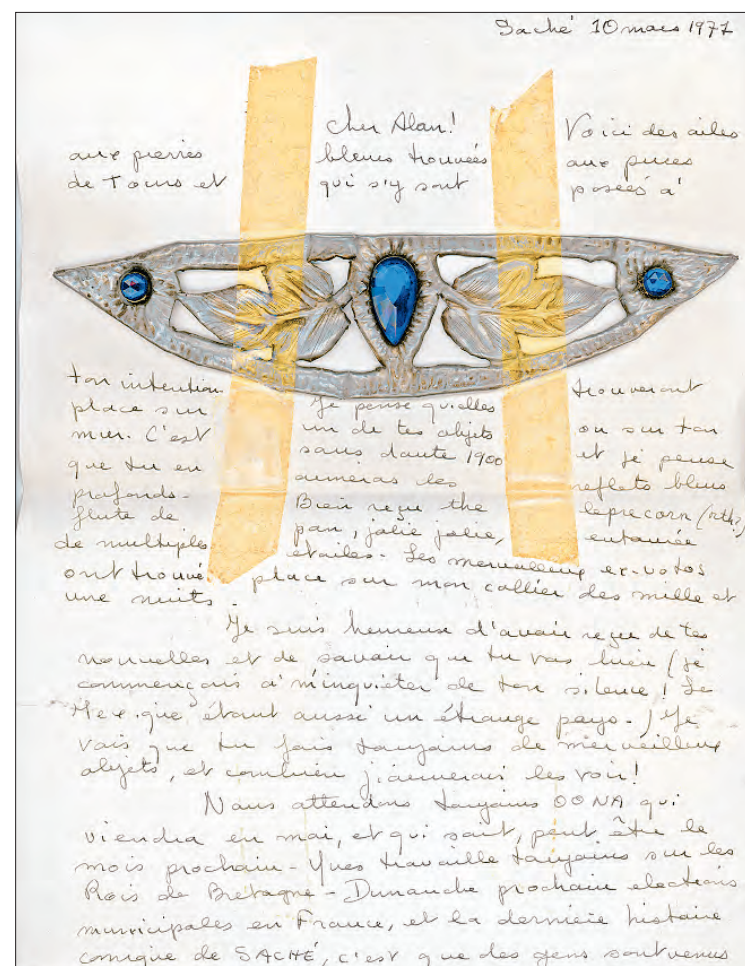 Saché 10 mars 1971
Cher Alan! Voici des ailes
aux pierres bleues trouvées aux puces
de Tours et qui s'y sont posées à
ton intention. Je pense qu'elles trouveront
place sur un de tes objets ou sur ton
mur. C'est sans doute 1900 et je pense
que tu en aimeras les reflets bleus
profonds - Bien reçu the leprecorn (rth?)
flute de pan, jolie jolie, entourée
de multiples étoiles - Les merveilleux ex-votos
ont trouvé place sur mon collier des mille et
une nuits.
Je suis heureuse d'avoir reçu de tes
nouvelles et de savoir que tu vas bien (je
commençais à m'inquiéter de ton silence! Le
Mexique étant aussi un étrange pays-) Je
vois que tu fais toujours de merveilleux
objets, et combien j'aimerais les voir!
Nous attendons toujours OONA qui
viendra en mai, et qui sait, peut être le
mois prochain - Yves travaille toujours sur les
Rois de Bretagne - Dimanche prochain elections
municipales en France, et la derniere histoire
comique de SACHÉ, c'est que des gens sont venus